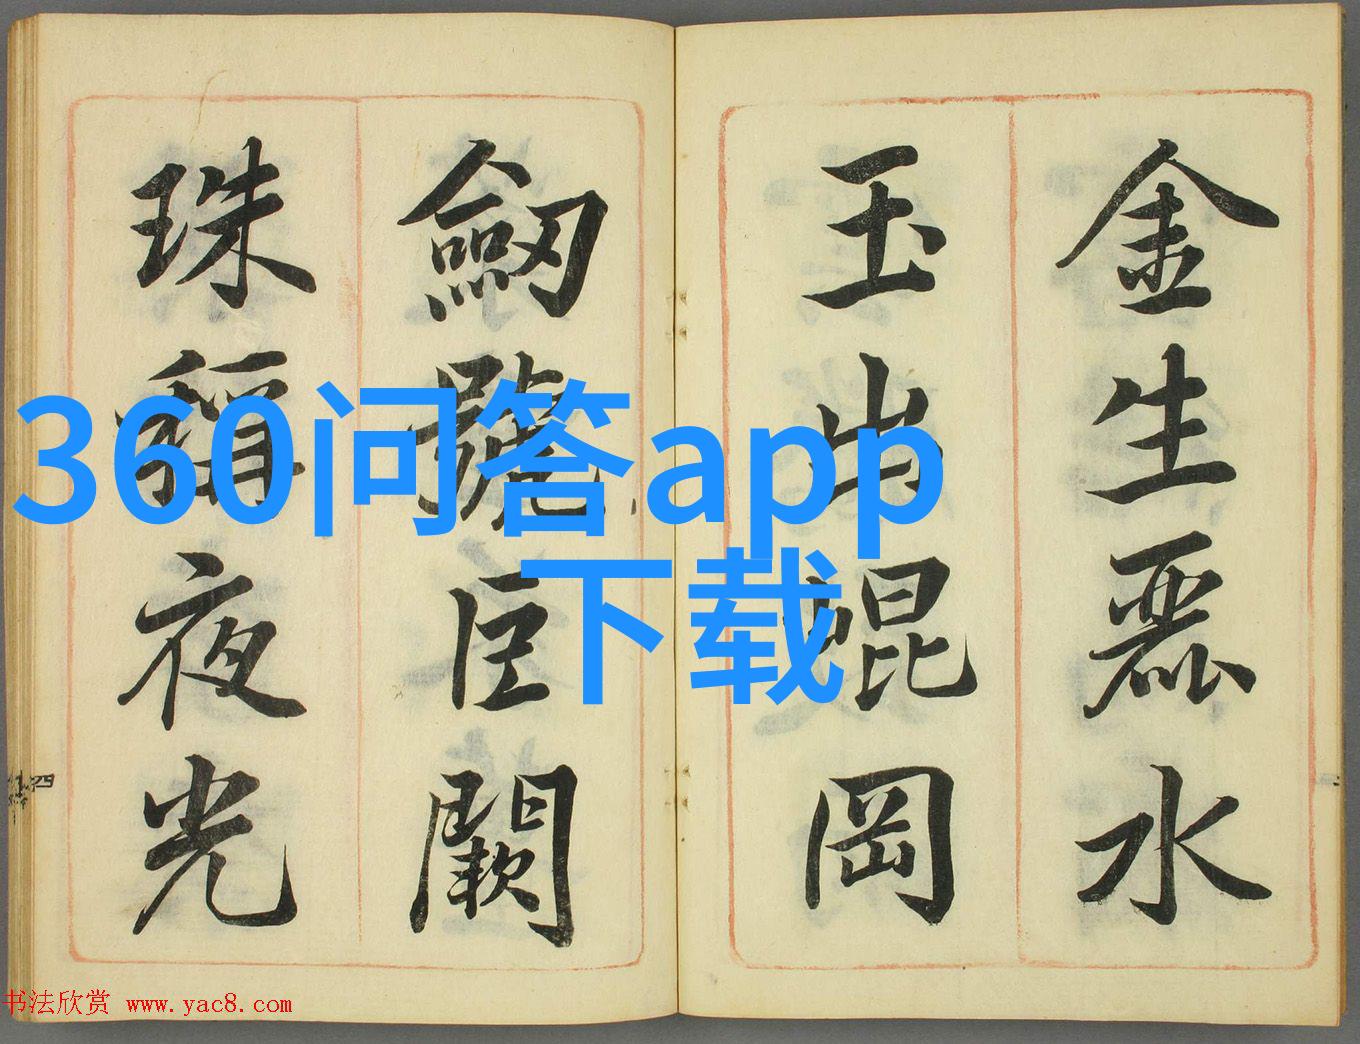 金生麗水
玉出崐岡
劒號巨闕
珠稱夜光
360问答app
下载
书法欣赏 www.yac8.com